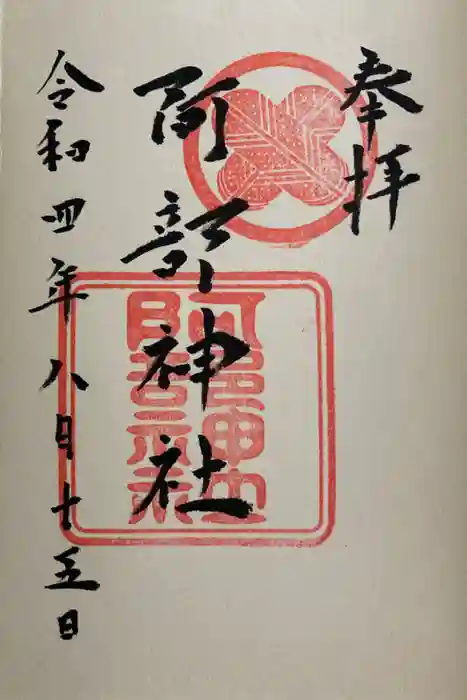 奉拝
阿部神社
令和四年八月十五日
阿部神社